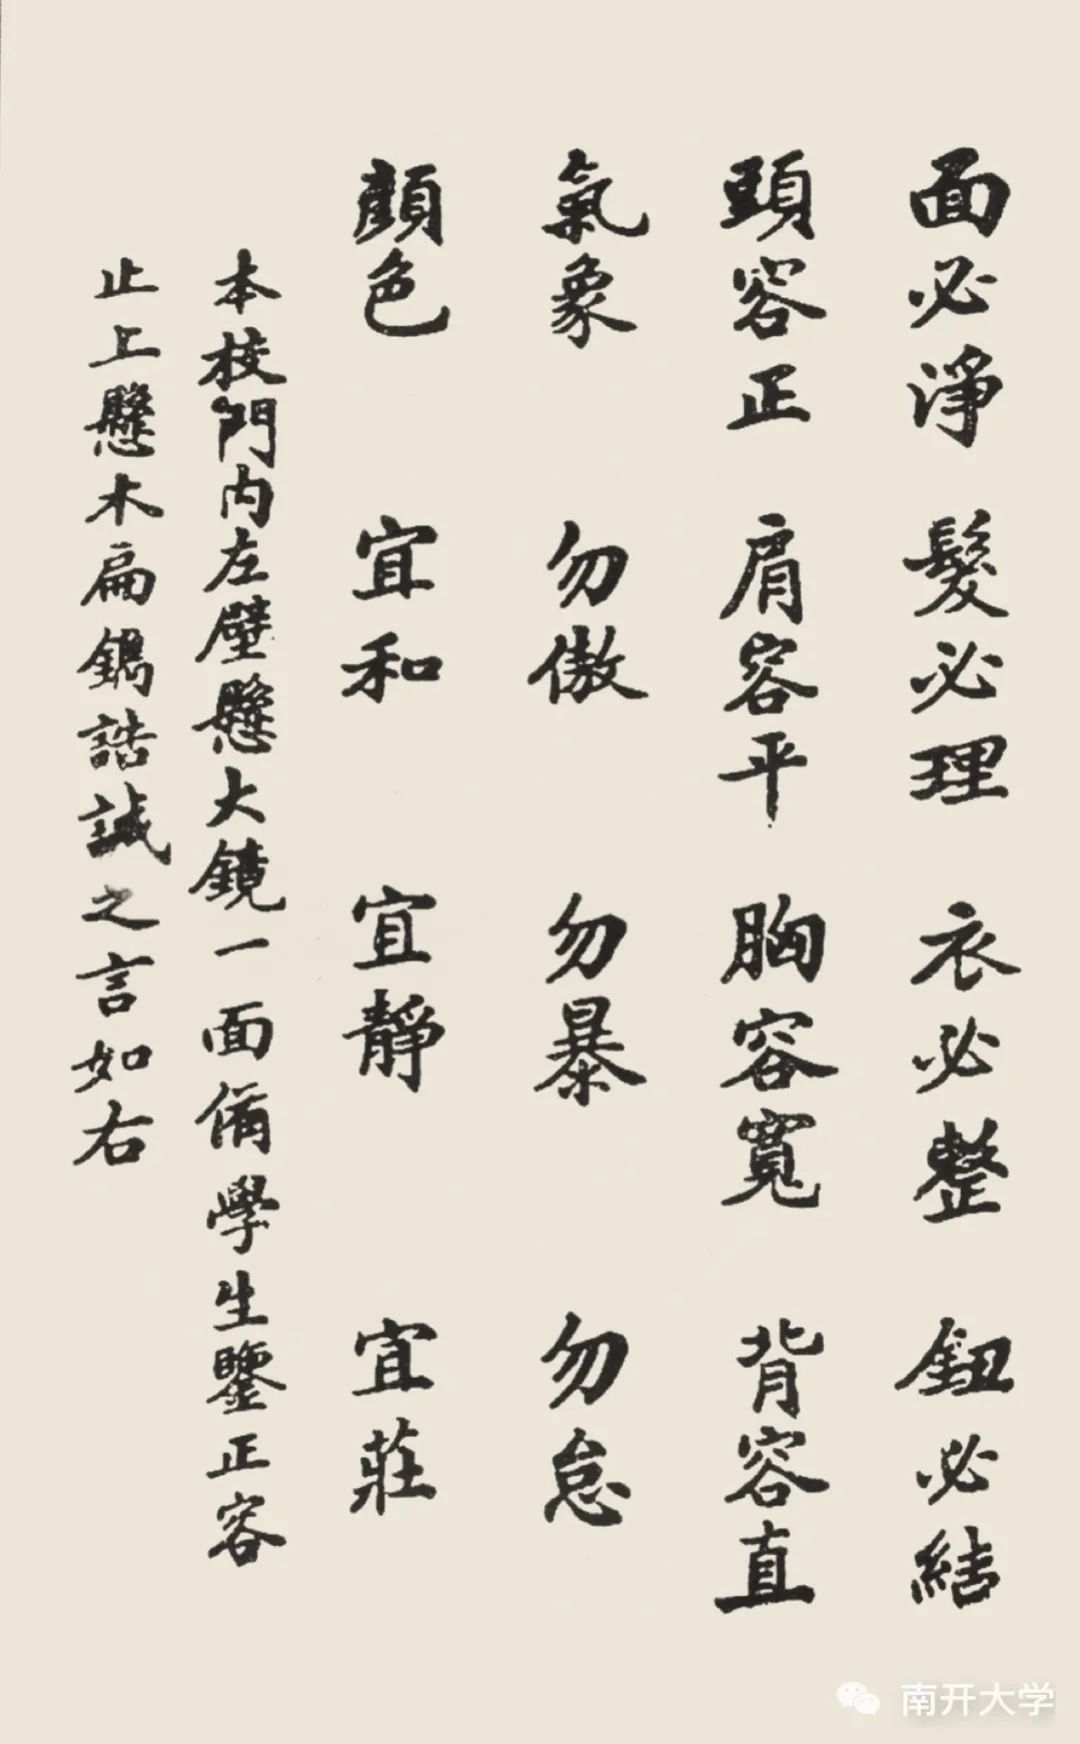 面必淨 髮必理 衣必整 鈕必結
頭容正 肩容平 胸容寬 背容直
氣象 勿傲 勿暴 勿怠
顏色 宜和 宜靜 宜莊
本校門內左壁懸大鏡一面備學生鑒正容
止上懸木扁鐫誥誡之言如右
南开大学